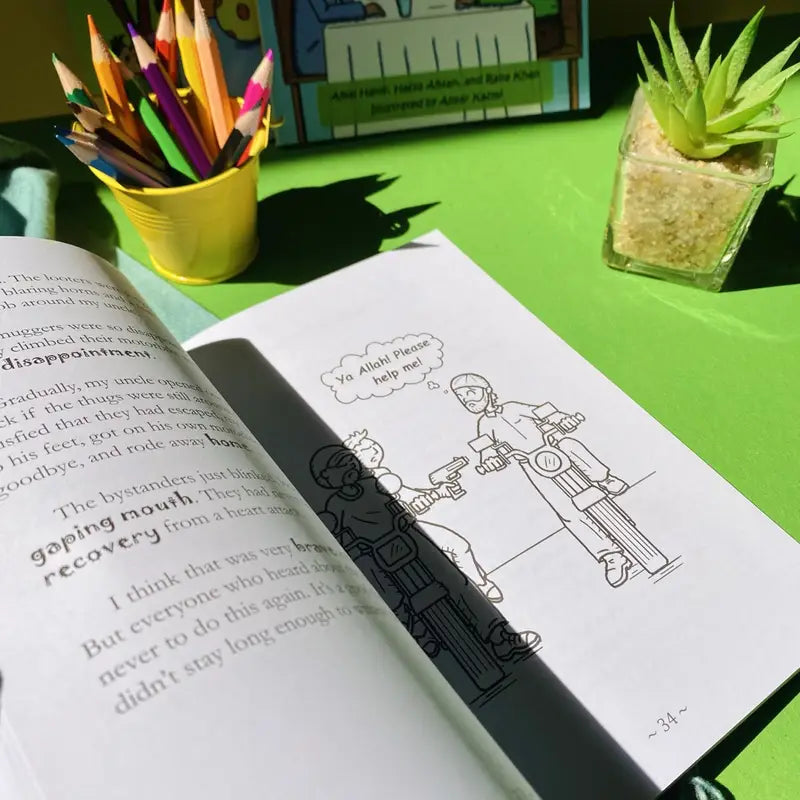 and Raiba Khan
Illustrated by
. The looters were
blaring horns and
around my uncle
muggers were so
climbed their
disappointment.
Gradually, my uncle opened
if the thugs were still
that they had escaped,
his feet, got on his own
goodbye, and rode away home.
The bystanders just blinked
gaping mouth. They had
recovery from a heart
I think that was very brave.
But everyone who heard about
never to do this again. It's a
didn't stay long enough to
Ya Allah! Please
help me!
~ 34 ~